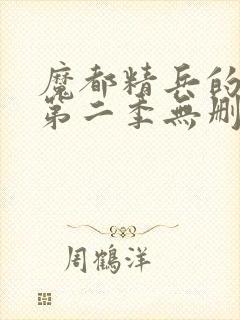 魔都精兵的
第二季無刪
周鶴洋